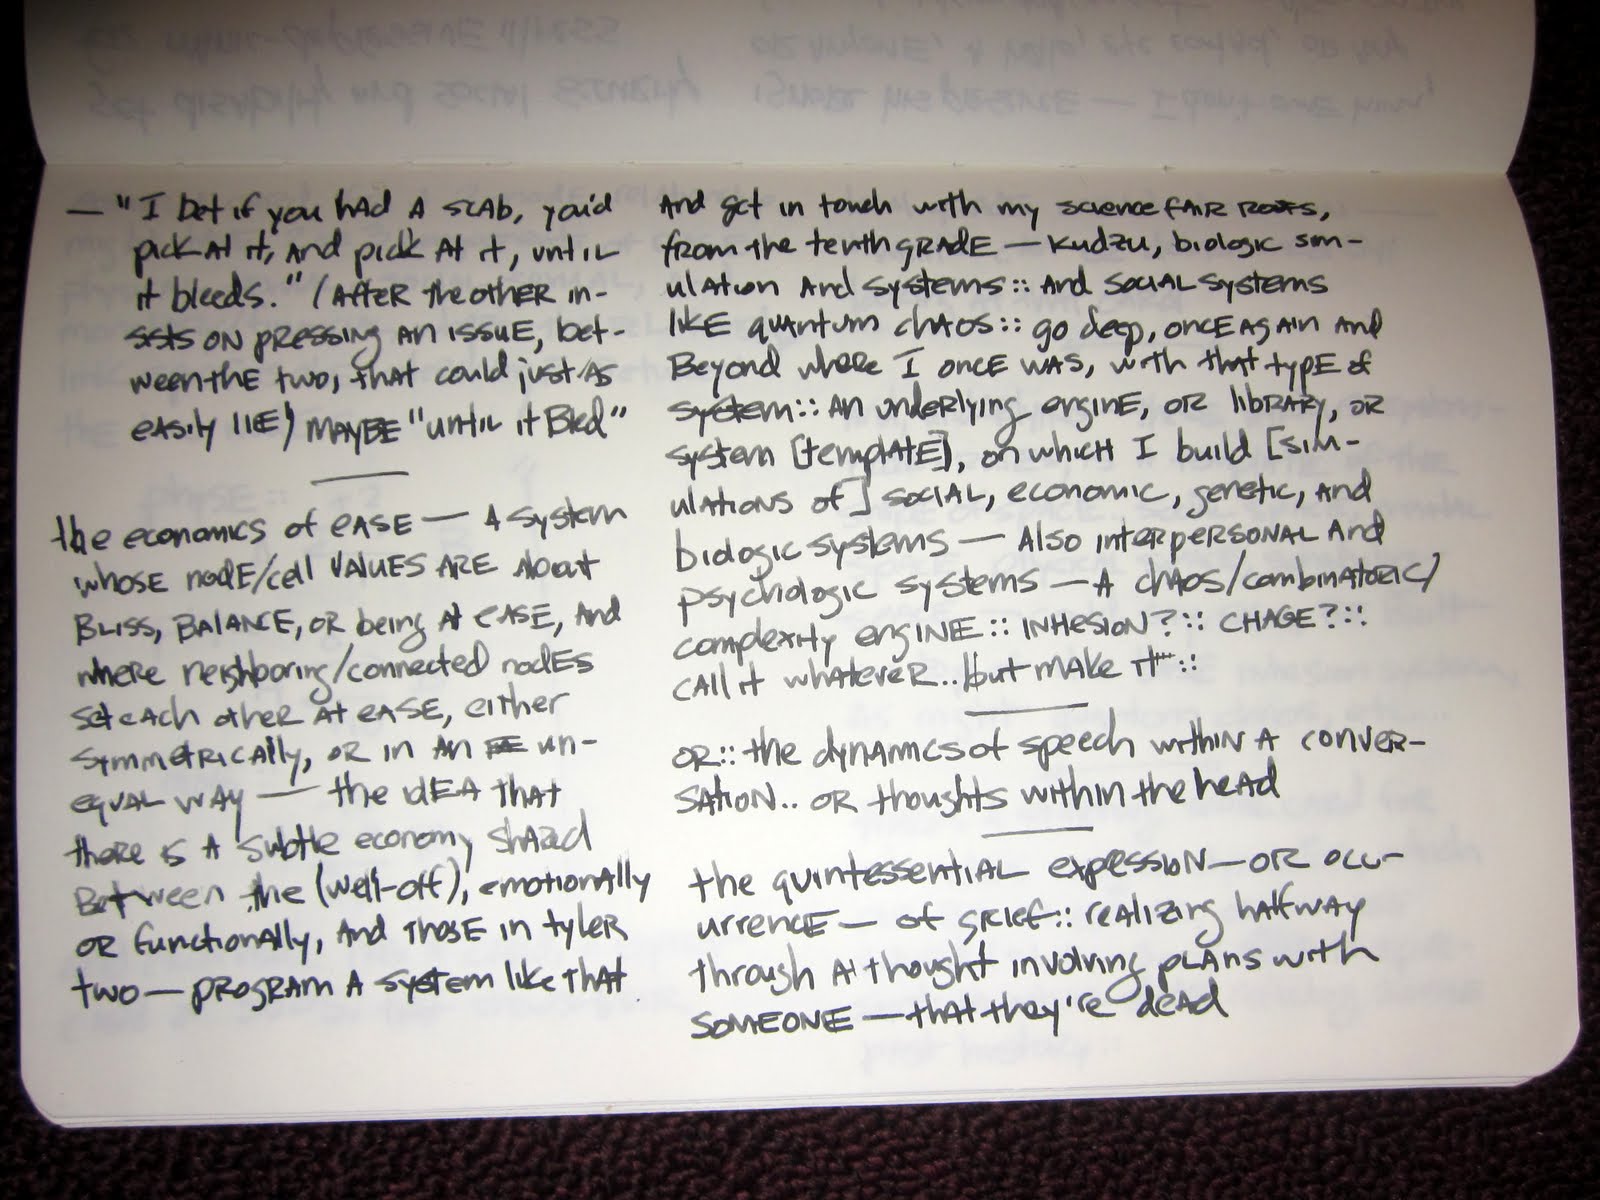 — "I bet if you had a scab, you'd
pick at it, and pick at it, until
it bleeds." (After the other in-
sists on pressing an issue, bet-
ween the two, that could just as
easily lie) maybe "until it bled"
the economics of ease — a system
whose node/cell values are about
bliss, balance, or being at ease, and
where neighboring/connected nodes
set each other at ease, either
symmetrically, or in an un-
equal way — the idea that
there is a subtle economy shared
between the (well-off), emotionally
or functionally, and those in tyler
two — program a system like that
And get in touch with my science fair roots,
from the tenth grade — kudzu, biologic sim-
ulation and systems :: and social systems
like quantum chaos :: go deep, once again and
Beyond where I once was, with that type of
system :: an underlying engine, or library, or
system [template], on which I build [sim-
ulations of] social, economic, genetic, and
biologic systems — Also interpersonal and
psychologic systems — a chaos/combinatoric/
complexity engine :: INHESION? :: CHAGE? ::
call it whatever.. but make it ::
OR :: the dynamics of speech within a conver-
sation.. or thoughts within the head
the quintessential expession — or occ-
urrence — of grief :: realizing halfway
through a thought involving plans with
someone — that they're dead